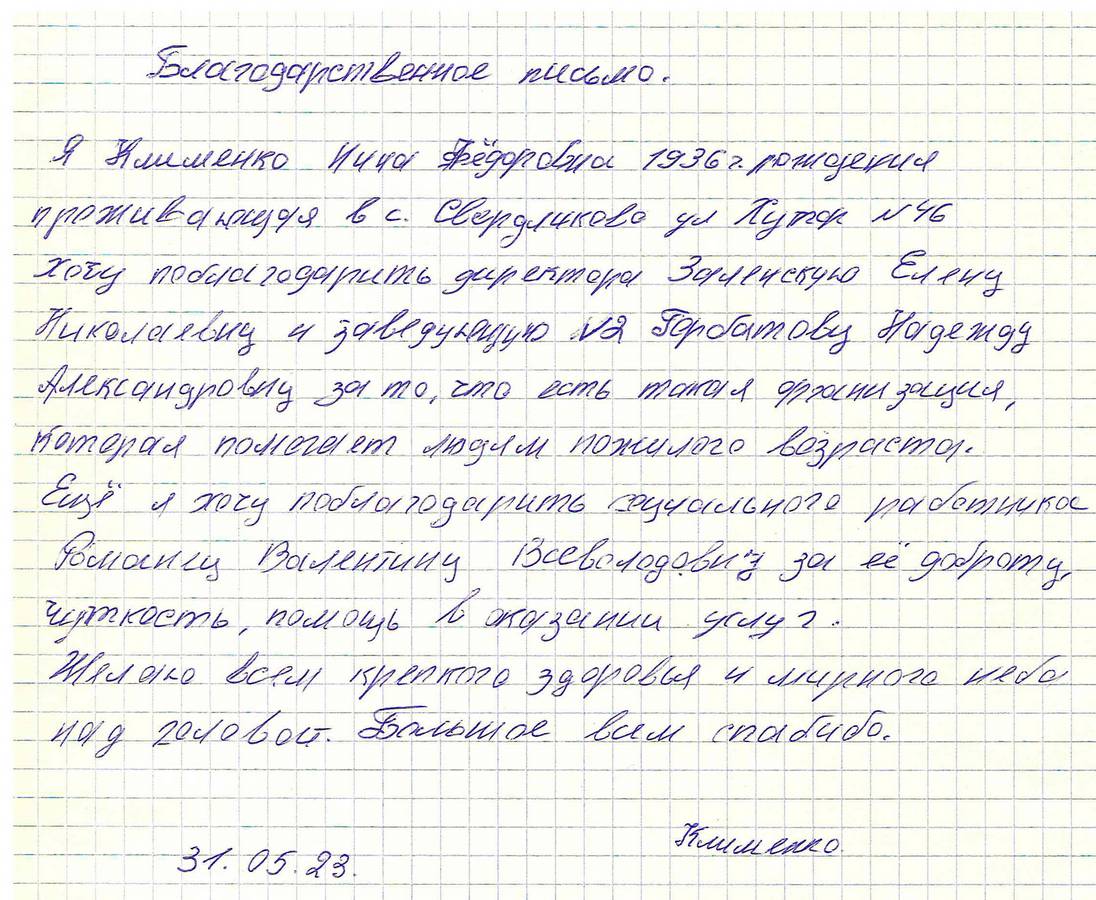 Благодарственное письмо.
Я Клименко Нина Фёдоровна 1936 г. рождения
проживающая в с. Свердликово ул Хутор №46
хочу поблагодарить директора Заленскую Елену
Николаевну и заведующую №2 Горбатову Надежду
Александровну за то, что есть такая организация,
которая помогает людям пожилого возраста.
Ещё я хочу поблагодарить социального работника
Романец Валентину Всеволодовну за её доброту,
чуткость, помощь в оказании услуг.
Желаю всем крепкого здоровья и мирного неба
над головой. Большое вам спабибо.
Клименко.
31.05.23.